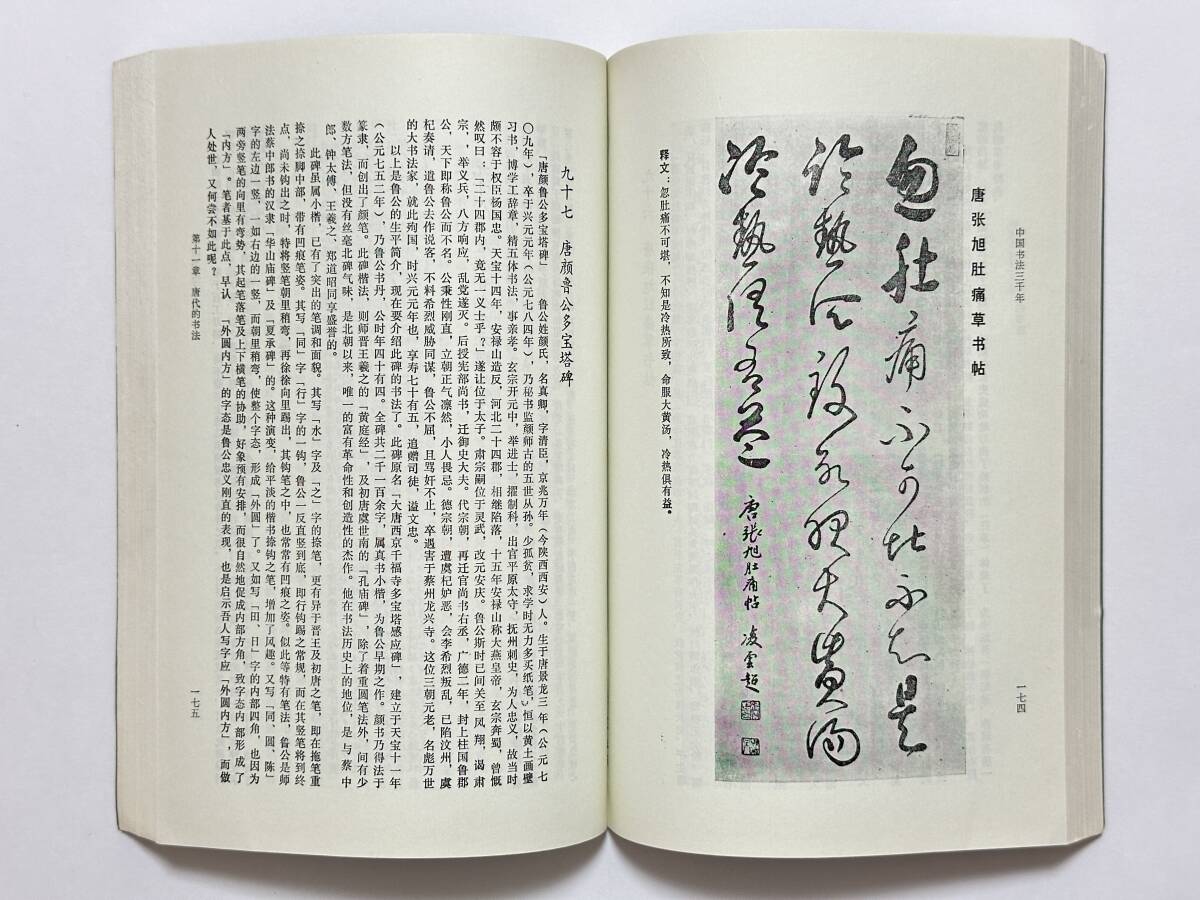 中国书法三千年
一七四
唐张旭肚痛草书帖
忽肚痛不可堪不知是
冷熱所致欲服大黄湯
冷熱俱有益
唐張旭肚痛帖 凌雲超
释文:忽肚痛不可堪,不知是冷热所致,命服大黄汤,冷热俱有益。
九十七 唐颜鲁公多宝塔碑
「唐颜鲁公多宝塔碑」 鲁公姓颜氏,名真卿,字清臣,京兆万年(今陕西西安)人。生于唐景龙三年(公元七
〇九年),卒于兴元元年(公元七八四年),乃秘书监颜师古的五世从孙。少孤贫,求学时无力多买纸笔,恒以黄土画壁
习书,博学工辞章,精五体书法,事亲孝。玄宗开元中,举进士,擢制科,出官平原太守,抚州刺史,为人忠义,故当时
颇不容于权臣杨国忠。天宝十四年,安禄山造反,河北二十四郡,相继陷落,十五年安禄山称大燕皇帝,玄宗奔蜀,曾慨
然叹曰:「二十四郡内,竟无一义士乎?」遂让位于太子。肃宗嗣位于灵武,改元安庆。鲁公斯时已间关至凤翔,谒肃
宗,举义兵,八方响应,乱党遂灭。后授宪部尚书,迁御史大夫。代宗朝,再迁官尚书右丞,广德二年,封上柱国鲁郡
公,天下即称鲁公而不名。公秉性刚直,立朝正气凛然,小人畏忌。德宗朝,遭虞杞妒恶,会李希烈叛乱,已陷汶州,虞
杞奏请,道鲁公去作说客,不料希烈威胁同谋,鲁公不屈,且骂奸不止,卒遇害于蔡州龙兴寺。这位三朝元老,名彪万世
的大书家,就此殉国,时兴元元年也,享寿七十有五,追赠司徒,谥文忠。
以上是鲁公的生平简介,现在要介绍此碑的书法了。此碑原名「大唐西京千福寺多宝塔感应碑」,建立于天宝十一年
(公元七五二年),乃鲁公书丹,公时年四十有四。全碑共二千一百余字,属真书小楷,为鲁公早期之作。颜书乃得法于
篆隶,而创出了颜笔。此碑楷法,则师晋王羲之的「黄庭经」,及初唐虞世南的「孔庙碑」,除了着重圆笔法外,间有少
数方笔法,但没有丝毫北碑气味,是北朝以来,唯一的富有革命性和创造性的杰作。他在书法历史上的地位,是与蔡中
郎、钟太傅、王羲之、郑道昭同享盛誉的。
此碑虽属小楷,已有了突出的笔调和面貌。其写「水」字及「之」字的捺笔,更有异于晋王及初唐之笔,即在拖笔重
捺之捺脚中部,带有凹痕笔姿。其写「同」字「行」字的一钩,鲁公一反直竖到底,即行钩踢之常规,而在其竖笔将到终
点,尚未钩出之时,特将竖笔朝里稍弯,再徐徐向里踢出,其钩笔之中,也常常有凹痕之姿。似此等特有笔法,鲁公是师
法蔡中郎书的汉隶「华山庙碑」及「夏承碑」的。这种演变,给平淡的楷书捺钩之笔,增加了风趣。又写「同、圆、陈」
字的左边一竖,一如右边的一竖,而朝里稍弯,使整个字态,形成「外圆」了。又如写「田、日」字的内部四角,也因为
两旁竖笔的向里有弯势,其起笔落笔及上下横笔的协助,好象预有安排,而很自然地促成内部方角,致字态内部形成了
「内方」。笔者基于此点,早认「外圆内方」的字态是鲁公忠义刚直的表现,也是启示吾人写字应「外圆内方」,而做
人处世,又何尝不如此呢?
第十一章 唐代的书法
一七五